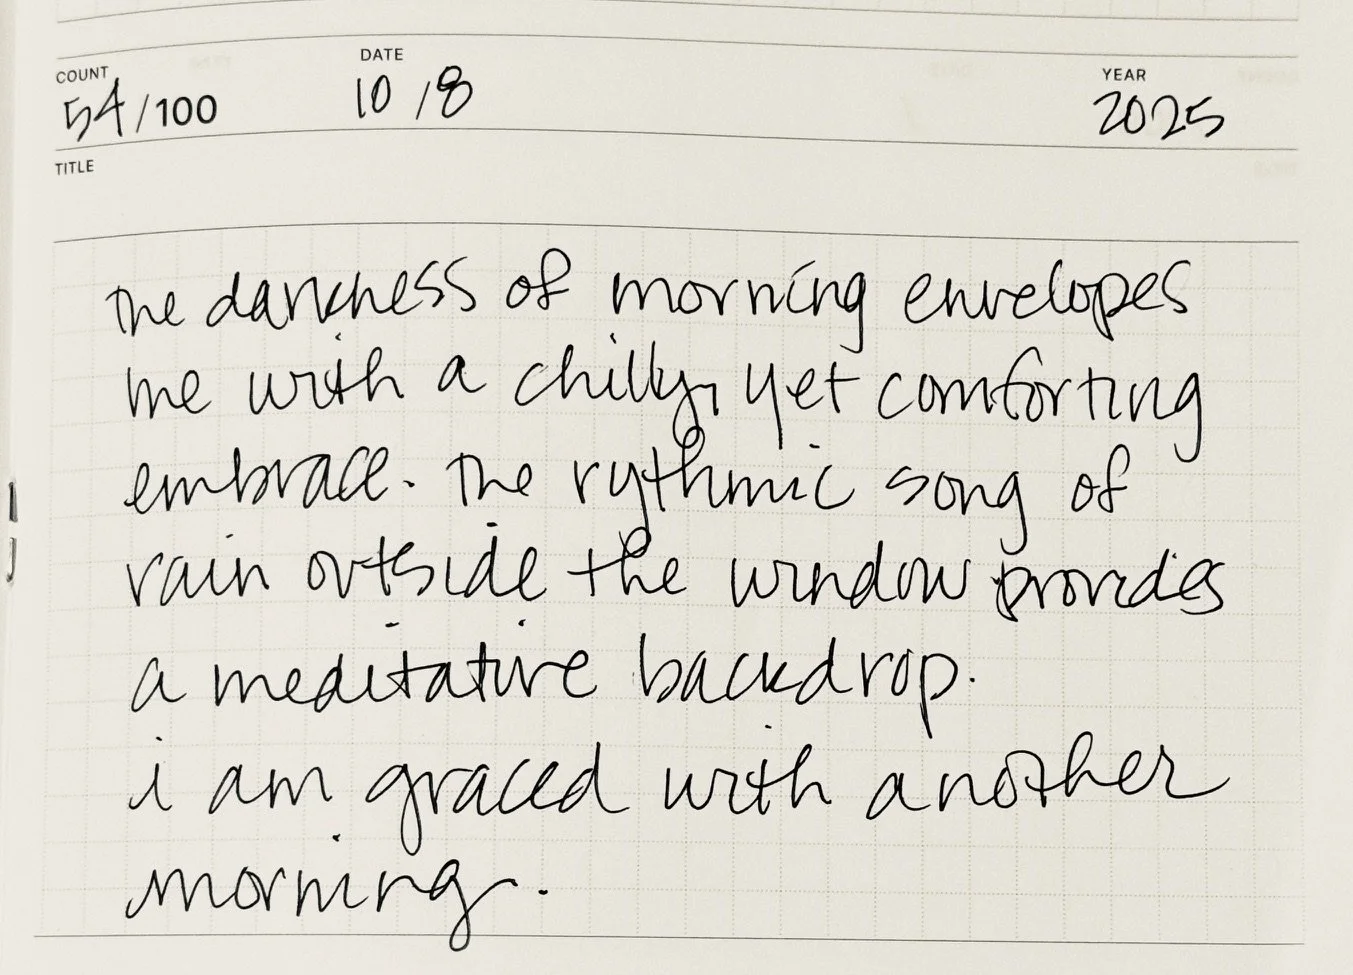 COUNT DATE YEAR
54/100 10/8 2025
TITLE
the darkness of morning envelopes
me with a chilly, yet comforting
embrace. the rythmic song of
rain outside the window provides
a meditative backdrop.
i am graced with another
morning.